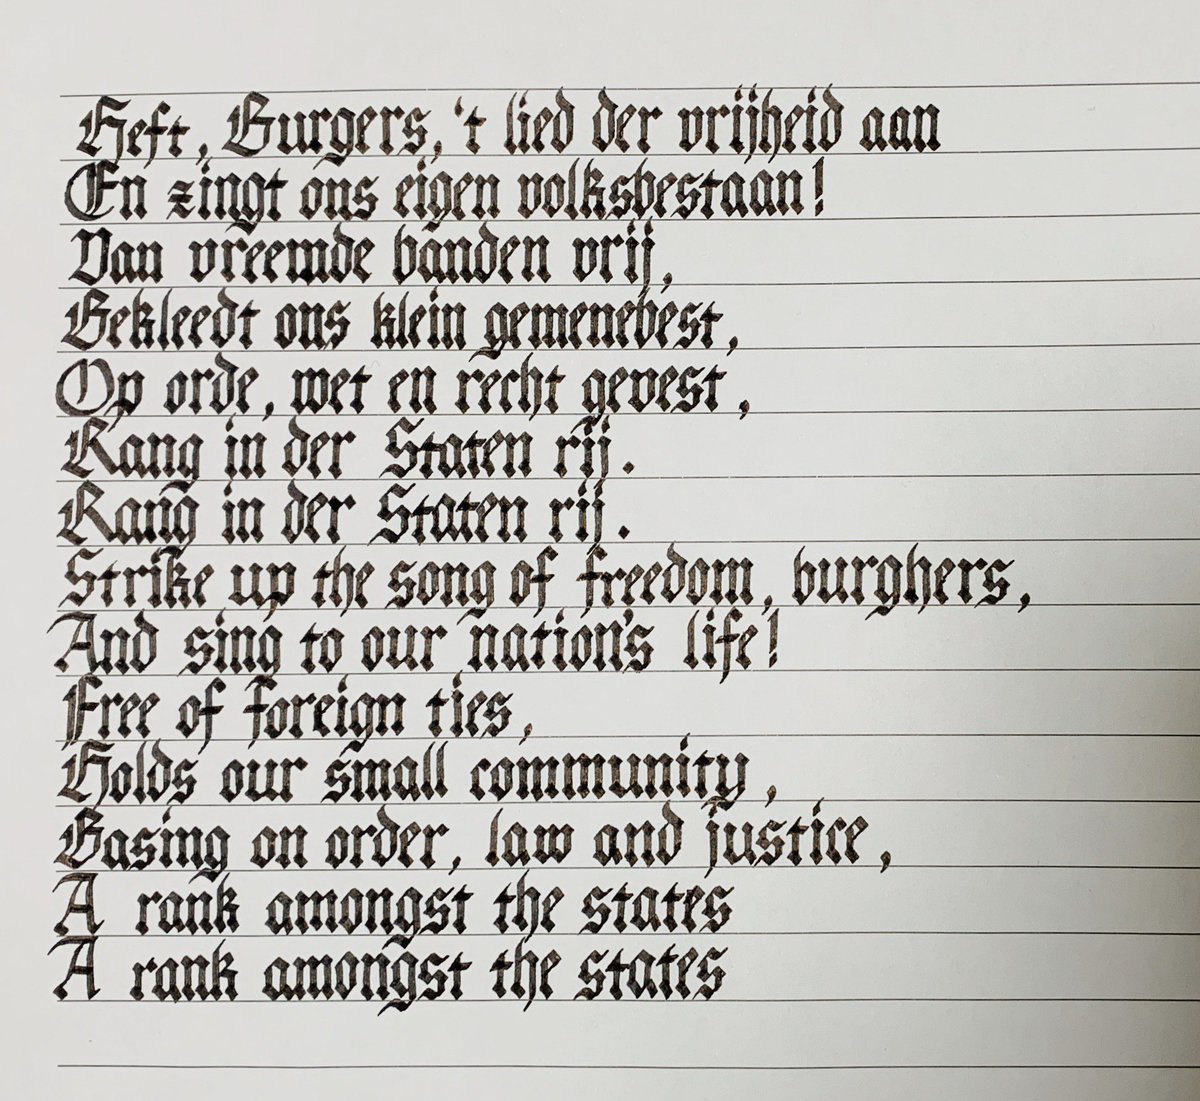 Heft, Burgers, 't lied der vrijheid aan
En zingt ons eigen volksbestaan!
Van vreemde banden vrij,
Bekleedt ons klein gemenebest,
Op orde, wet en recht gevest,
Rang in der Staten rij.
Rang in der Staten rij.
Strike up the song of freedom, burghers,
And sing to our nation's life!
Free of foreign ties,
Holds our small community,
Basing on order, law and justice,
A rank amongst the states
A rank amongst the states